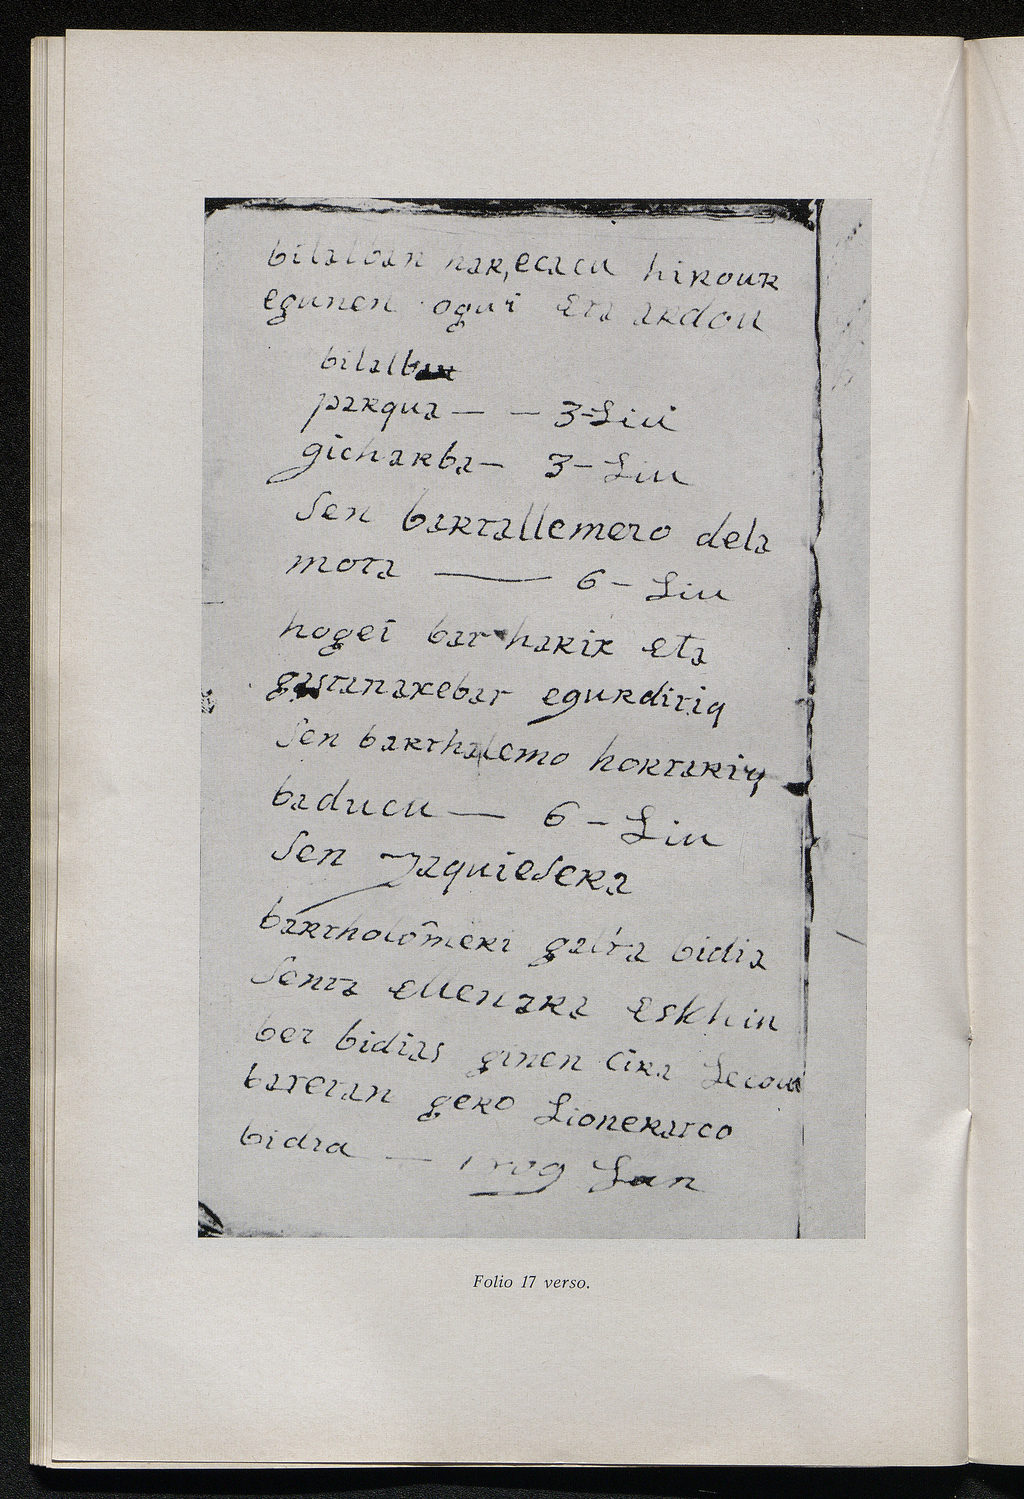 bilalban har,ecacu hirour
egunen ogui eta ardou
bilalban
parqua — — 3-Liu
gicharba — 3 — Liu
Sen bartallemero dela
mota — 6 — Liu
hogei bar harix eta
gastanaxebar egurdiriq
Sen barthalemo hortariq
baducu — 6 — Liu
Sen Jaquiesera
bartholômeri galtra bidia
Senta ellenara eskhin
ber bidias ginen cira Lecou
baretan gero Lioneratco
bidia —
Folio 17 verso.